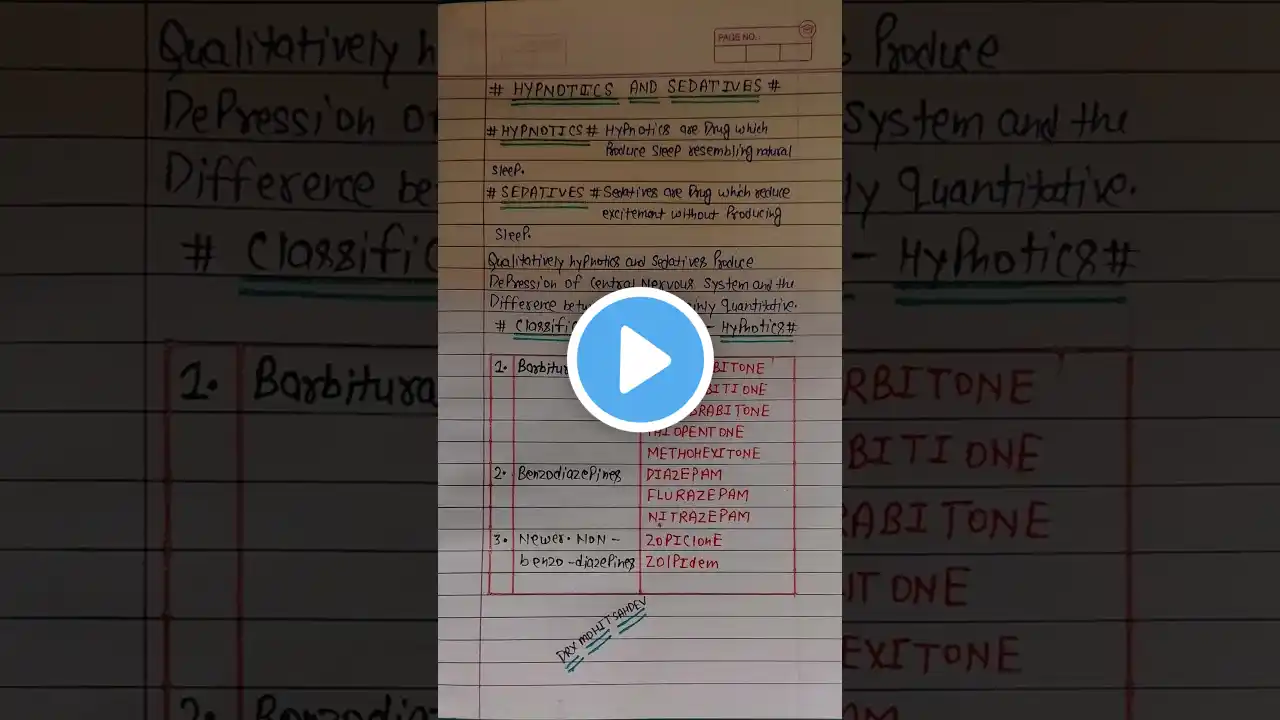 PAGE NO.:
# HYPNOTICS AND SEDATIVES #
# HYPNOTICS # Hypnotics are Drug which
Produce Sleep resembling natural
Sleep.
# SEDATIVES # Sedatives are Drug which reduce
excitement without Producing
Sleep.
Qualitatively hyphotics and Sedatives Produce
Depression of Central Nervous System and the
Difference Quantitative.
# - Hyphotics#
1.
THIOPENTONE
METHOHEXITONE
2. Benzodiazepines DIAZEPAM
FLURAZEPAM
NITRAZEPAM
3. Newer. NON - ZOPIClonE
benzo-diazepines ZOlPIdem
DRX MOHIT SAHDEV